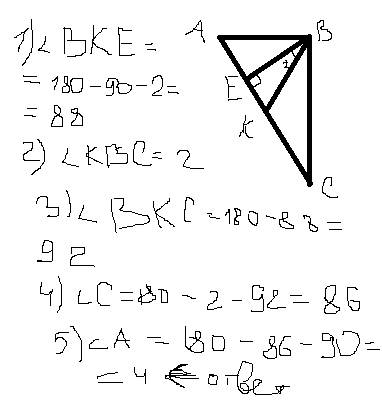 1) ∠BKE =
= 180-90-2=
= 88
2) ∠KBC = 2
3) ∠BKC = 180-88 =
92
4) ∠C = 180 - 2 - 92 = 86
5) ∠A = 180 - 86 - 90 =
= 4 ← ответ
A
B
2
E
K
C